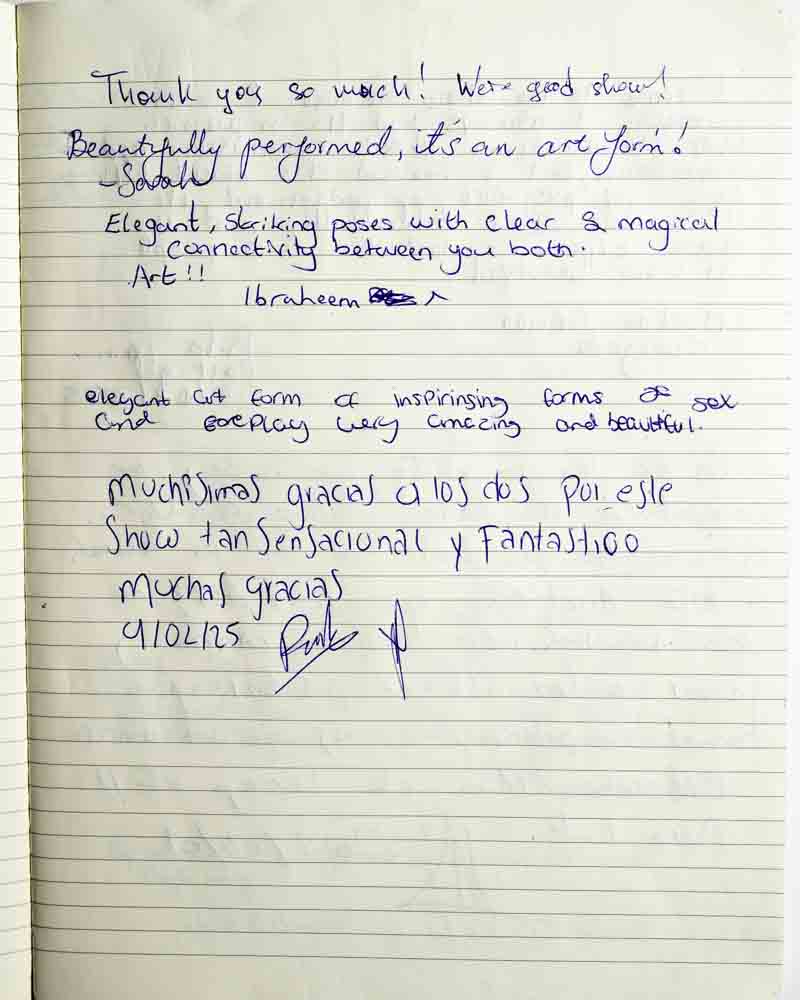 Thank you so much! Were good show!
Beautifully performed, it's an art form!
- Sarah
Elegant, Striking poses with clear & magical
connectivity between you both.
Art!!
Ibraheem
elegant art form of inspirinsing forms of sex
and foreplay very amazing and beautiful.
Muchisimas gracias a los dos por este
Show tan sensacional y Fantastico
Muchas gracias
9/02/25